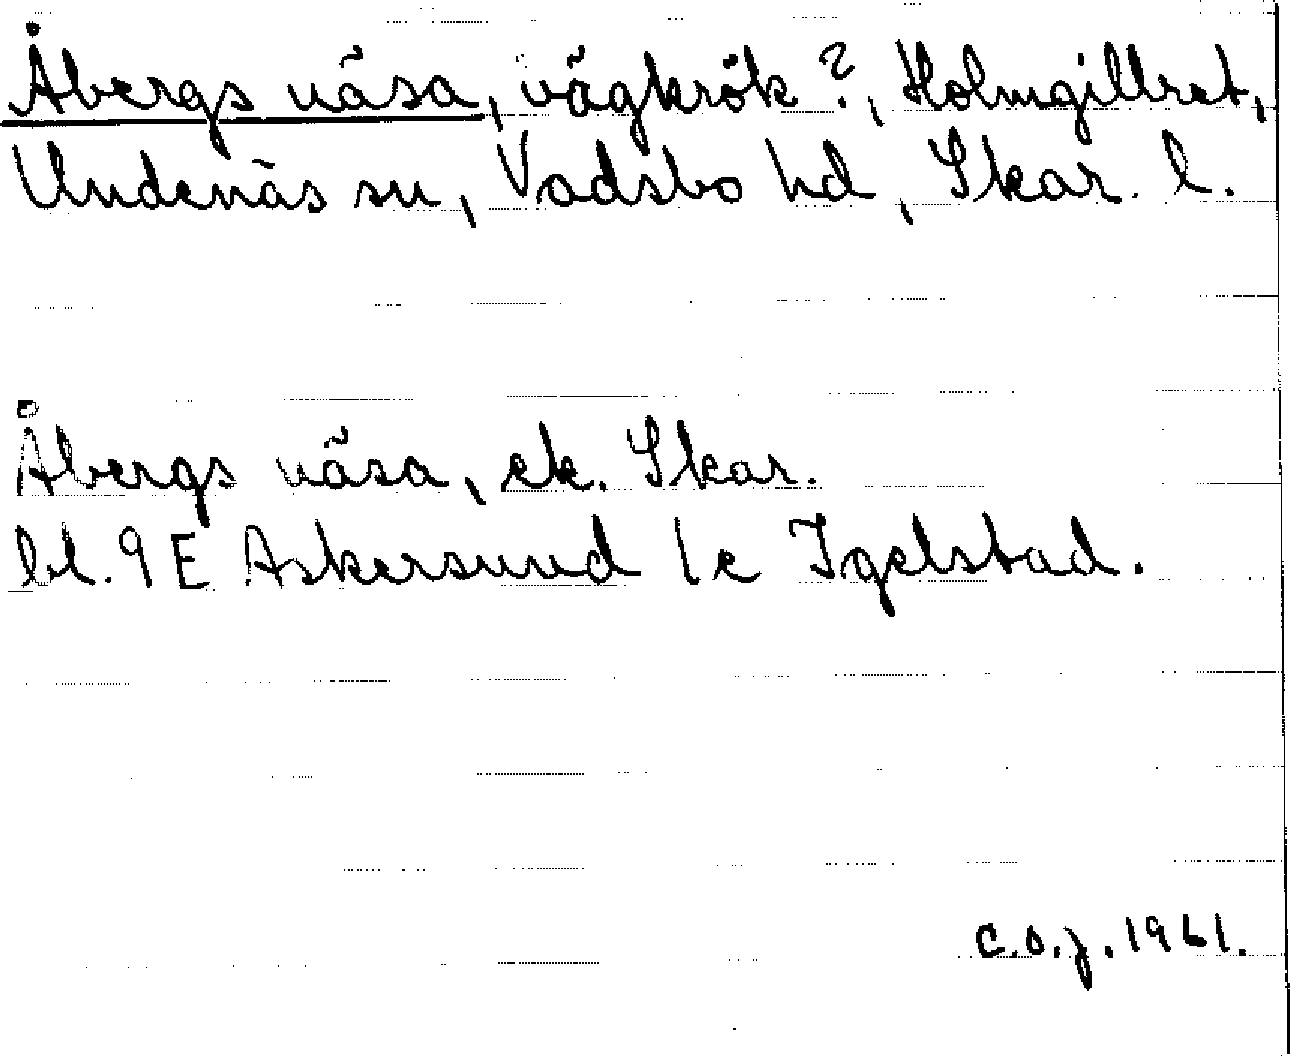 Åbergs näsa, vägkrök?, Holmgillret,
Undenäs sn, Vadsbo hd, Skar. l.
Åbergs näsa, ek. Skar.
bl. 9E Askersund 1 c Igelstad.
C.O.J. 1961.